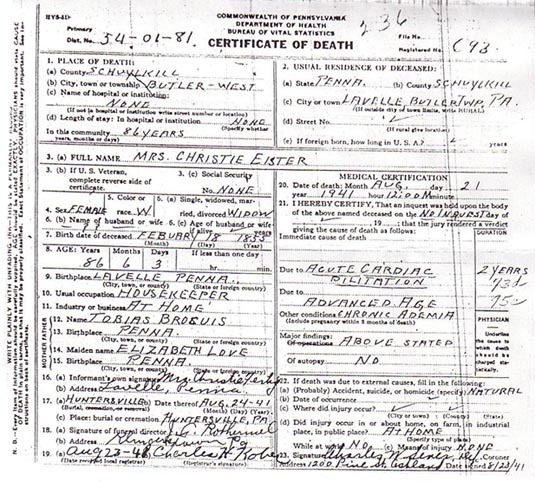 HVS-41
COMMONWEALTH OF PENNSYLVANIA
DEPARTMENT OF HEALTH
BUREAU OF VITAL STATISTICS
236
Primary
Dist. No. 54-01-81
CERTIFICATE OF DEATH
File No.
Registered No. C93
1. PLACE OF DEATH:
(a) County SCHUYLKILL
(b) City, town or township BUTLER-WEST
(c) Name of hospital or institution:
NONE
(If not in hospital or institution write street number or location)
(d) Length of stay: In hospital or institution NONE
(Specify whether
In this community 86 YEARS
years, months or days)
2. USUAL RESIDENCE OF DECEASED:
(a) State PENNA. (b) County SCHUYLKILL
(c) City or town LAVELLE, BUTLER TWP. PA.
(If outside city or town limits, write RURAL)
(d) Street No.
(If rural give location)
(e) If foreign born, how long in U. S. A.? years
3. (a) FULL NAME MRS. CHRISTIE EISTER
3. (b) If U. S. Veteran,
complete reverse side of
certificate.
3. (c) Social Security
No. NONE
4. Sex FEMALE
5. Color or
race W
6. (a) Single, widowed, mar-
ried, divorced WIDOW
6. (b) Name of husband or wife
6. (c) Age of husband or wife
if alive years
7. Birth date of deceased FEBUARY 18 1855
(Month) (Day) (Year)
8. AGE: Years Months Days If less than one day
86 6 3 hr. min.
9. Birthplace LAVELLE PENNA.
(City, town, or county) (State or foreign country)
10. Usual occupation HOUSEKEEPER
11. Industry or business AT HOME
FATHER
12. Name TOBIAS
13. Birthplace PENNA.
(City, town, or county) (State or foreign country)
MOTHER
14. Maiden name ELIZABETH LOVE
15. Birthplace PENNA.
(City, town, or county) (State or foreign country)
16. (a) Informant's own signature Mrs.
(b) Address Lavelle Penna
17. (a) HUNTERSVILLE (b) Date thereof AUG. 24-41
(Burial, cremation, or removal) (Month) (Day) (Year)
(c) Place: burial or cremation HUNTERSVILLE, PA.
18. (a) Signature of funeral director
(b) Address Pa
19. (a) Aug 23-41 Charles H.
(Date received local registrar) (Registrar's signature)
MEDICAL CERTIFICATION
20. Date of death: Month AUG. day 21
year 1941 hour 12:00 minute
21. I HEREBY CERTIFY, That an inquest was held upon the body
of the above named deceased on the NO INQUEST day of
19 ; that the jury rendered a verdict
giving the cause of death as follows:
DURATION
Immediate cause of death
Due to ACUTE CARDIAC 2 YEARS
DILITATION
Due to
ADVANCED AGE
Other conditions CHRONIC ADEMIA
(Include pregnancy within 3 months of death)
PHYSICIAN
Major findings:
Of operations ABOVE STATED
Of autopsy NO
Underline
the cause to
which death
should be
charged sta-
tistically.
22. If death was due to external causes, fill in the following:
(a) (Probably) Accident, suicide, or homicide (specify) NATURAL
(b) Date of occurrence
(c) Where did injury occur?
(City or town) (County) (State)
(d) Did injury occur in or about home, on farm, in industrial
place, in public place? AT HOME
(Specify type of place)
While at work? NO (e) Means of injury NONE
23. Signature Charles
Coroner
Address 1200 Pine St. Ashland Date signed 8/23/41